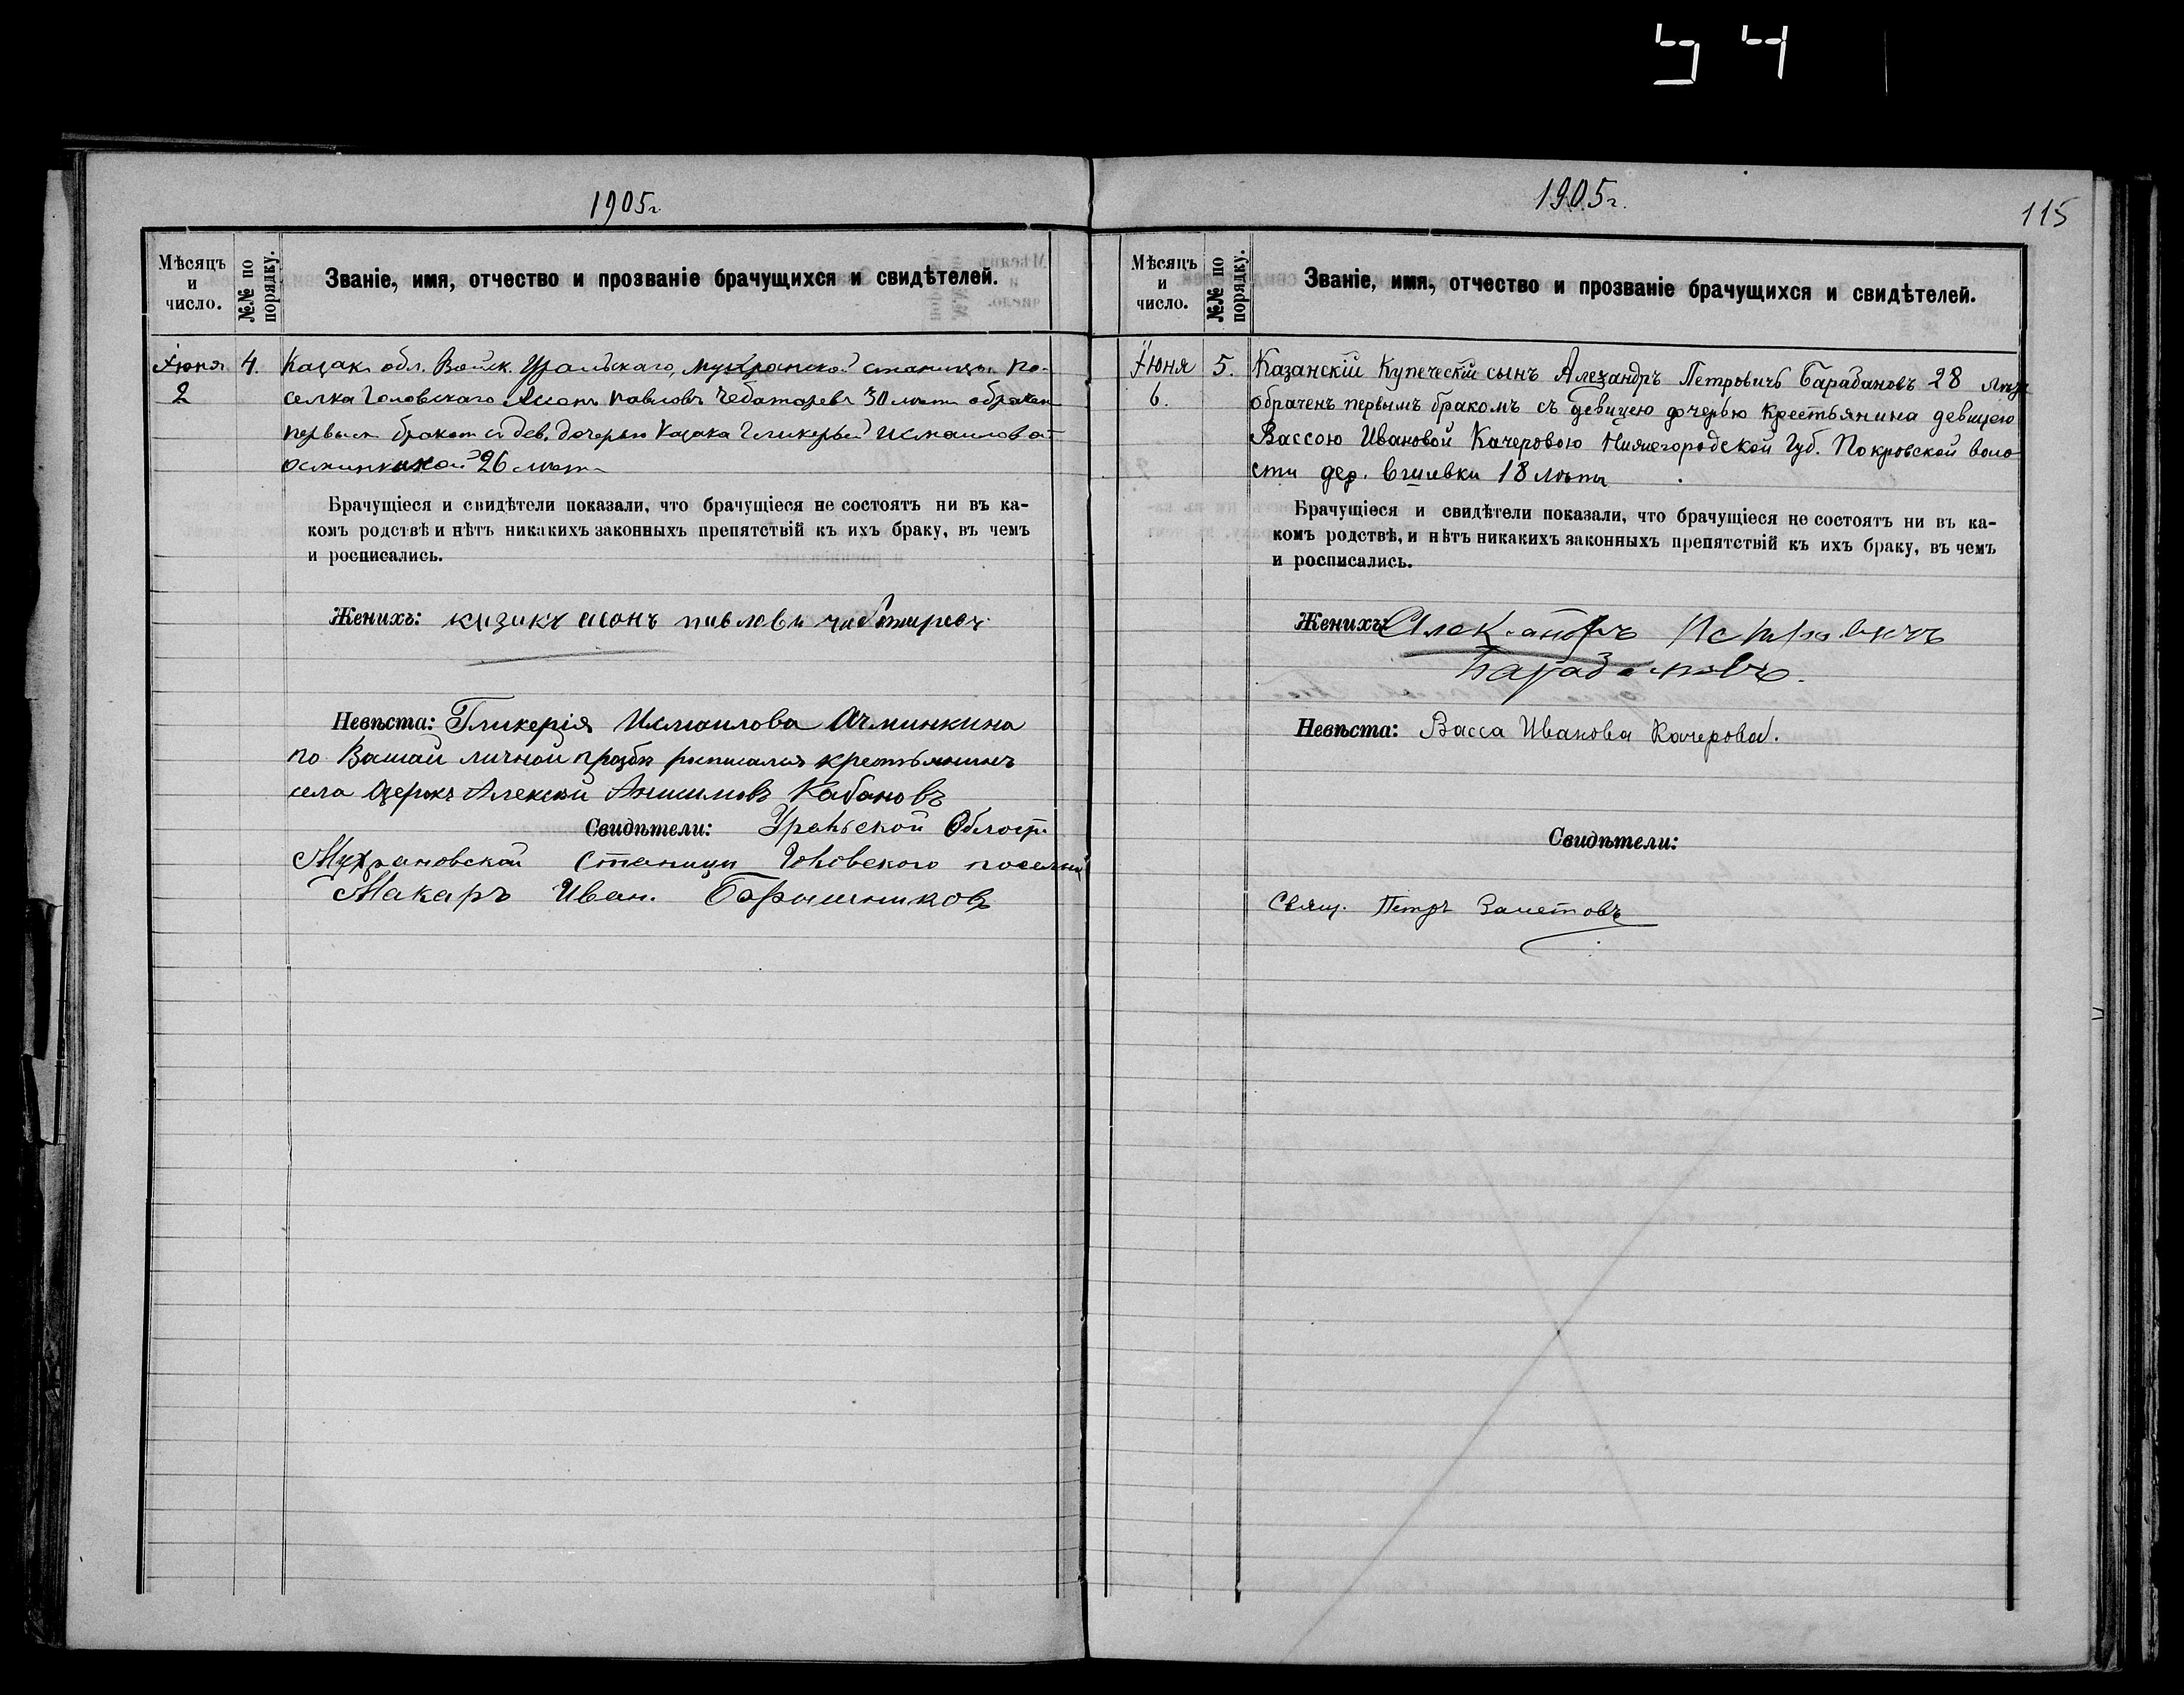 1905г.
Мѣсяцъ и число.
№№ по порядку.
Званіе, имя, отчество и прозваніе брачущихся и свидѣтелей.
Іюня 4. Казакъ обл. Войск. Уральскаго, Мухрановской станицы по-
2 селка Головскаго Павловъ Чеботаревъ 30 лѣтъ обрачен
первым браком съ дев. дочерью казака Гликерьей Исмаиловой
26 лѣтъ
Брачущіеся и свидѣтели показали, что брачущіеся не состоятъ ни въ ка-
комъ родствѣ и нѣтъ никакихъ законныхъ препятствій къ ихъ браку, въ чемъ
и росписались.
Женихъ: казакъ павловъ чеботаревъ
Невѣста: Гликерія Исмаилова Ачминкина
по личной прозбѣ росписался крестьянинъ
села Озерокъ Алексѣй Анисимовъ Кабановъ
Свидѣтели: Уральской Област.
Мухрановской Станицы поселка
Макаръ Иван. Барышниковъ
1905г.
115
Мѣсяцъ и число.
№№ по порядку.
Званіе, имя, отчество и прозваніе брачущихся и свидѣтелей.
Іюня 5. Казанскій Купеческій сынъ Александръ Петровичъ Барабановъ 28 лѣтъ
6. обраченъ первымъ бракомъ съ девицею дочерью Крестьянина девицею
Вассою Ивановой Качеровою Нижегородской Губ. Покровской воло
сти дер. 18 лѣтъ
Брачущіеся и свидѣтели показали, что брачущіеся не состоятъ ни въ ка-
комъ родствѣ, и нѣтъ никакихъ законныхъ препятствій къ ихъ браку, въ чемъ
и росписались.
Женихъ: Александръ Петровичъ
Барабановъ.
Невѣста: Васса Иванова Качерова.
Свидѣтели:
Свящ. Петръ Заметовъ